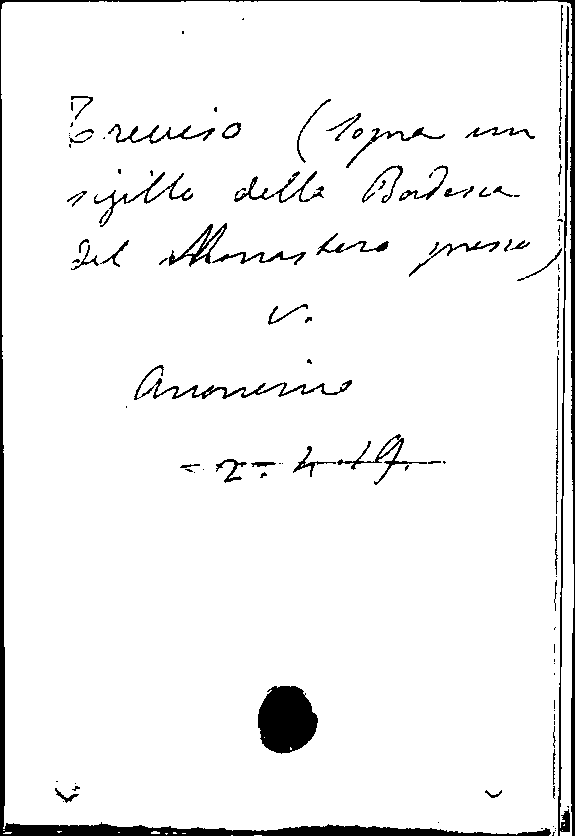 Treviso (sopra un
sigillo della Badessa
del Monastero presso)
v.
Anonimo
- 2 - 4 - 19.